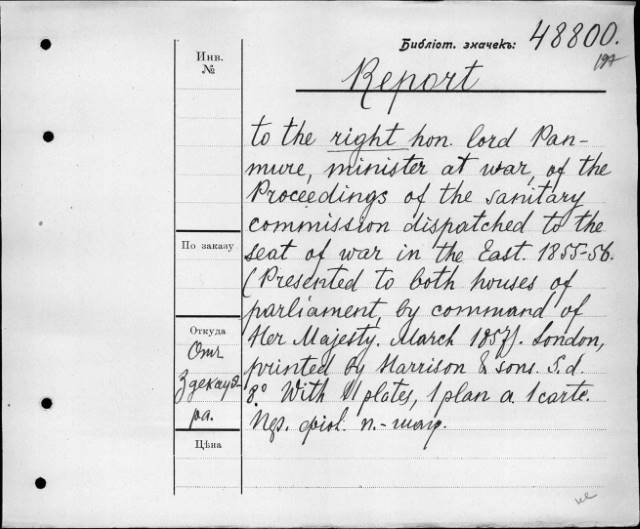 Библіот. значекъ: 48800.
Инв.
№
Report
to the right hon. lord Pan-
mure, minister at war, of the
Proceedings of the sanitary
commission dispatched to the
По заказу
seat of war in the East. 1855-56.
(Presented to both houses of
parliament, by command of
Откуда
Her Majesty. March 1857). London,
Отъ
printed by Harrison & sons. S. d.
Здекауэ-
8.° With 11 plates, 1 plan a. 1 carte.
ра.
n.-
Цѣна